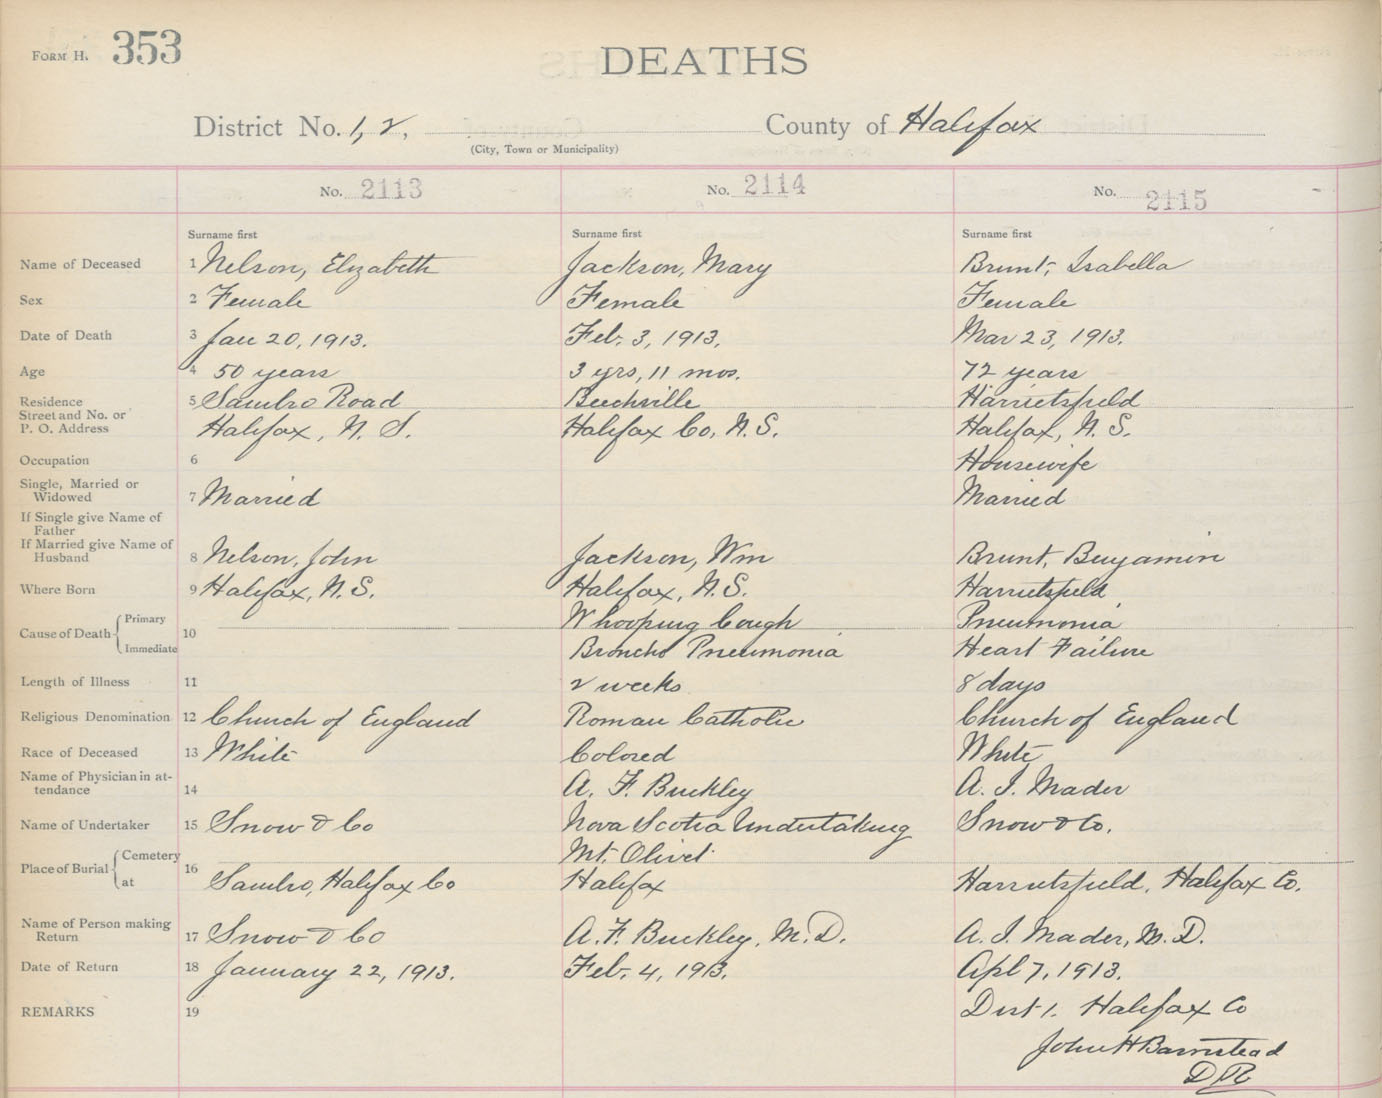 FORM H. 353
DEATHS
District No. 1, 2, County of Halifax
(City, Town or Municipality)
No. 2113 No. 2114 No. 2115
Surname first Surname first Surname first
Name of Deceased 1 Nelson, Elizabeth Jackson, Mary Brunt, Isabella
Sex 2 Female Female Female
Date of Death 3 Jan 20, 1913. Feb. 3, 1913. Mar 23, 1913.
Age 4 50 years 3 yrs, 11 mos. 72 years
Residence 5 Sambro Road Beechville Harrietsfield
Street and No. or
P. O. Address Halifax, N. S. Halifax Co, N.S. Halifax, N.S.
Occupation 6 Housewife
Single, Married or
Widowed 7 Married Married
If Single give Name of
Father
If Married give Name of
Husband 8 Nelson, John Jackson, Wm Brunt, Benjamin
Where Born 9 Halifax, N.S. Halifax, N.S. Harrietsfield
Cause of Death Primary 10 Whooping Cough Pneumonia
Immediate Broncho Pneumonia Heart Failure
Length of Illness 11 2 weeks 8 days
Religious Denomination 12 Church of England Roman Catholic Church of England
Race of Deceased 13 White Colored White
Name of Physician in at-
tendance 14 A. F. Buckley A. I. Mader
Name of Undertaker 15 Snow & Co Nova Scotia Undertaking Snow & Co.
Place of Burial Cemetery 16 Mt. Olivet
at Sambro, Halifax Co Halifax Harrietsfield, Halifax Co.
Name of Person making
Return 17 Snow & Co A. F. Buckley, M.D. A. I. Mader, M.D.
Date of Return 18 January 22, 1913. Feb. 4, 1913. Apl 7, 1913.
REMARKS 19 Dist 1. Halifax Co
John H Barnstead
DR